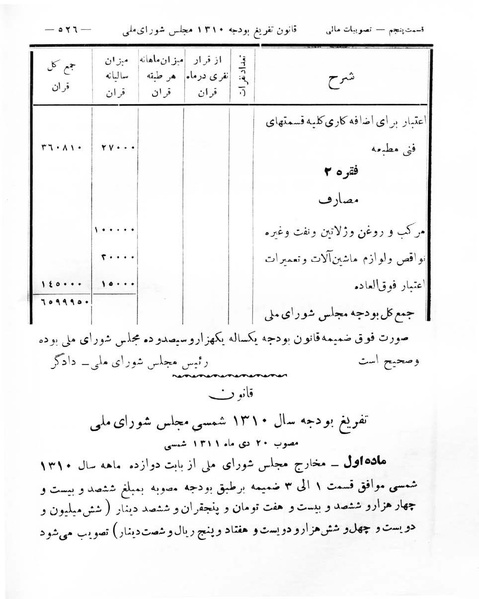 قسمت پنجم — تصویبات مالی    قانون تفریغ بودجه ۱۳۱۰ مجلس شورای ملی    — ۵۲۶ —
شرح    تعداد نفرات    از قرار نفری در ماه قران    میزان ماهانه هر طبقه قران    میزان سالیانه قران    جمع کل قران
اعتبار برای اضافه کاری کلیه قسمتهای
فنی مطبعه    ۲۷۰۰۰    ۳۶۰۸۱۰
فقره ۲
مصارف
مرکب و روغن و ژلاتین و نفت و غیره    ۱۰۰۰۰۰
نواقص و لوازم ماشین آلات و تعمیرات    ۳۰۰۰۰
اعتبار فوق العاده    ۱۵۰۰۰    ۱۴۵۰۰۰
جمع کل بودجه مجلس شورای ملی    ۶۵۹۹۹۵۰
صورت فوق ضمیمه قانون بودجه یکساله یکهزار و سیصد و ده مجلس شورای ملی بوده
و صحیح است    رئیس مجلس شورای ملی — دادگر
قانون
تفریغ بودجه سال ۱۳۱۰ شمسی مجلس شورای ملی
مصوب ۲۰ دی ماه ۱۳۱۱ شمسی
ماده اول — مخارج مجلس شورای ملی از بابت دوازده ماهه سال ۱۳۱۰
شمسی موافق قسمت ۱ الی ۳ ضمیمه بر طبق بودجه مصوبه بمبلغ ششصد و بیست و
چهار هزار و ششصد و بیست و هفت تومان و پنجقران و ششصد دینار (شش میلیون و
دویست و چهل و شش هزار و دویست و هفتاد و پنج ریال و شصت دینار) تصویب می شود